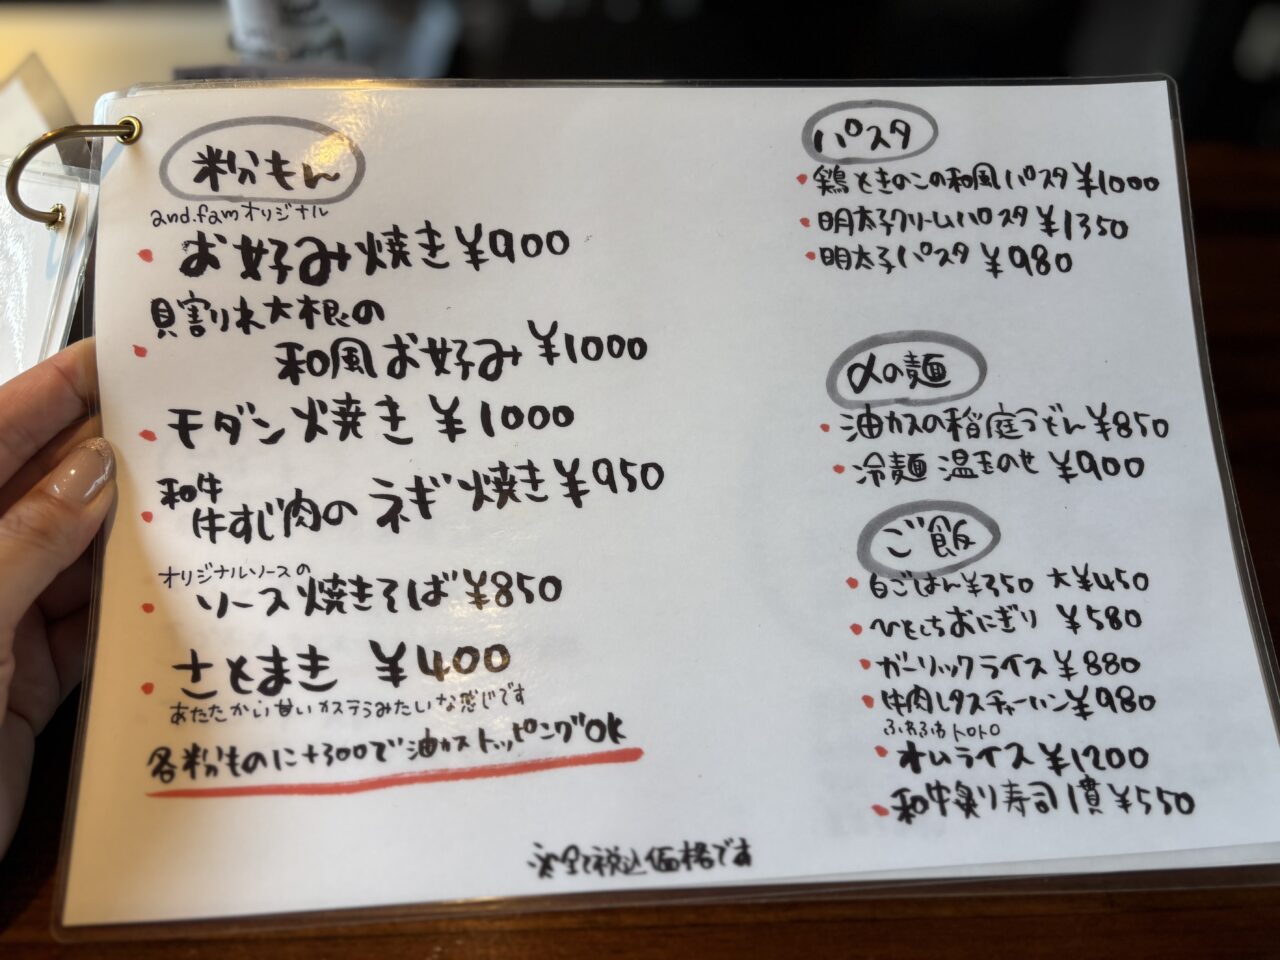 粉もん
and.famオリジナル
・お好み焼き ¥900
貝割れ大根の
・和風お好み ¥1000
・モダン焼き ¥1000
和牛
・牛すじ肉のネギ焼き ¥950
オリジナルソースの
・ソース焼きそば ¥850
・さとまき ¥400
あたたかい甘いカステラみたいな感じです
各粉ものに+300で油カストッピングOK
パスタ
・鶏ときのこの和風パスタ ¥1000
・明太子クリームパスタ ¥1350
・明太子パスタ ¥980
〆の麺
・油カスの稲庭うどん ¥850
・冷麺 温玉のせ ¥900
ご飯
・白ごはん ¥350 大 ¥450
・ひとくちおにぎり ¥580
・ガーリックライス ¥880
・牛肉レタスチャーハン ¥980
ふわふわトロトロ
・オムライス ¥1200
・和牛炙り寿司1貫 ¥550
※全て税込価格です